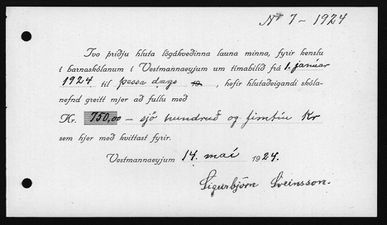 No 7 - 1924
Tvo þriðju hluta lögákveðinna launa minna, fyrir kenslu
í barnaskólanum í Vestmannaeyjum um tímabilið frá 1. janúar
1924 til þessa dags, hefir hlutaðeigandi skóla-
nefnd greitt mjer að fullu með
Kr. 750,00 — sjö hundruð og fimtíu Kr
sem hjer með kvittast fyrir.
Vestmannaeyjum 14. maí 1924.
Sigurbjörn Sveinsson.